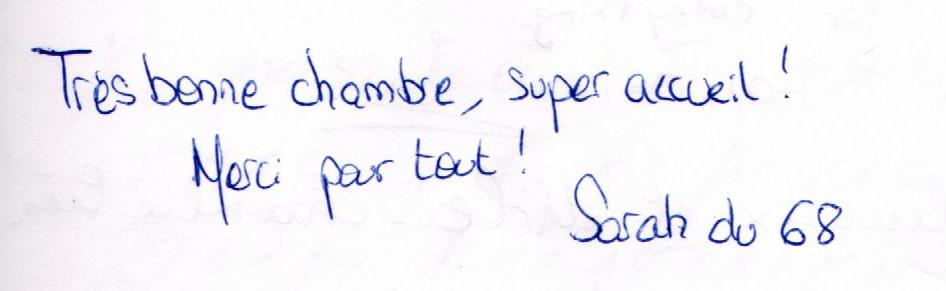 Très bonne chambre, super accueil !
Merci pour tout !
Sarah du 68